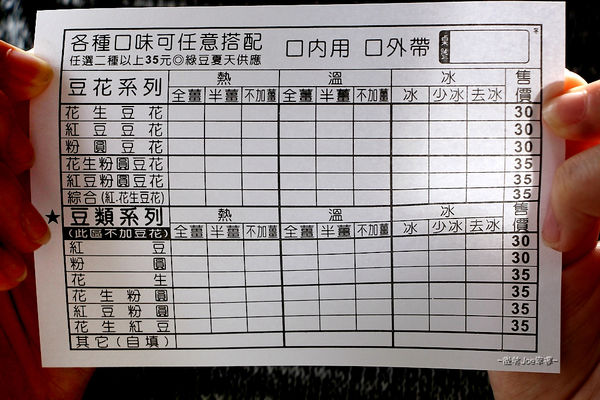 各種口味可任意搭配 □內用 □外帶 桌號
任選二種以上35元◎綠豆夏天供應
豆花系列 熱 溫 冰 售價
全薑 半薑 不加薑 全薑 半薑 不加薑 冰 少冰 去冰
花生豆花 30
紅豆豆花 30
粉圓豆花 30
花生粉圓豆花 35
紅豆粉圓豆花 35
綜合(紅.花生豆花) 35
★豆類系列 熱 溫 冰 售價
(此區不加豆花) 全薑 半薑 不加薑 全薑 半薑 不加薑 冰 少冰 去冰
紅豆 30
粉圓 30
花生 35
花生粉圓 35
紅豆粉圓 35
花生紅豆 35
其它(自填)